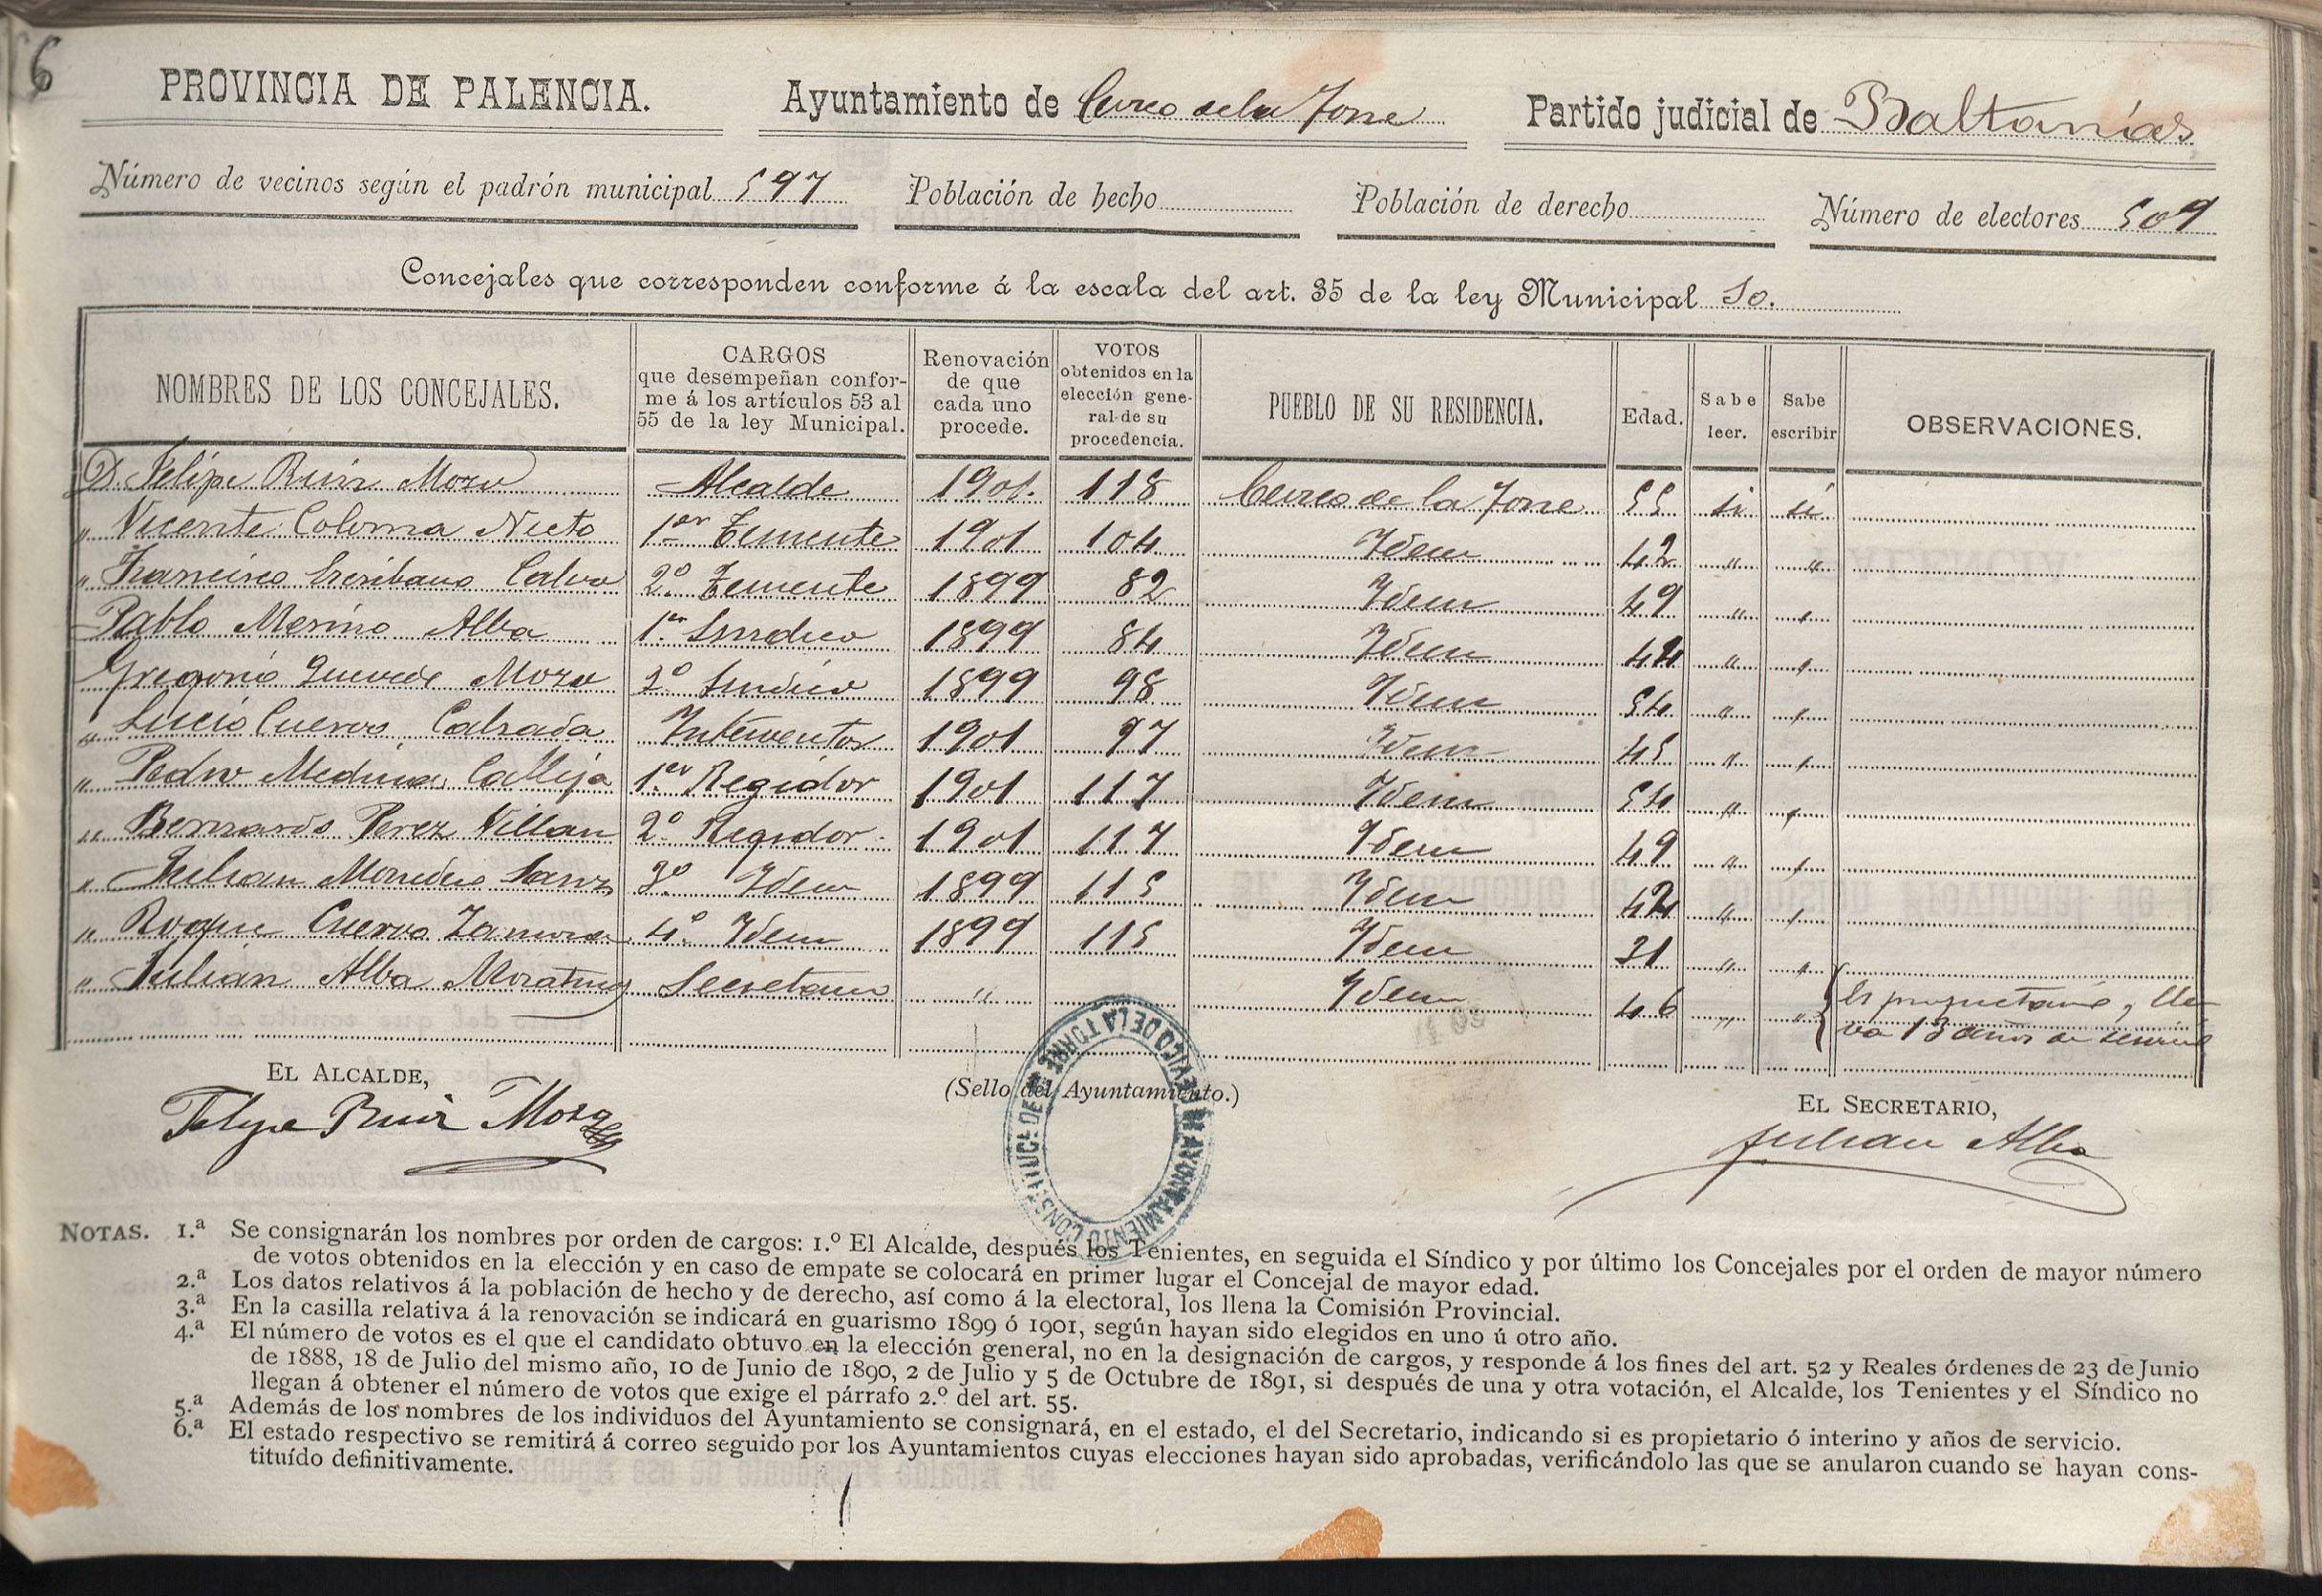 6
PROVINCIA DE PALENCIA. Ayuntamiento de Cevico de la Torre Partido judicial de Baltanás
Número de vecinos según el padrón municipal 597 Población de hecho Población de derecho Número de electores 509
Concejales que corresponden conforme á la escala del art. 35 de la ley Municipal 10.
NOMBRES DE LOS CONCEJALES. CARGOS que desempeñan conforme á los artículos 53 al 55 de la ley Municipal. Renovación de que cada uno procede. VOTOS obtenidos en la elección general de su procedencia. PUEBLO DE SU RESIDENCIA. Edad. Sabe leer. Sabe escribir OBSERVACIONES.
D. Felipe Ruiz Mozo Alcalde 1901. 118 Cevico de la Torre 55 si si
" Vicente Coloma Nieto 1er Teniente 1901 104 Idem 42 " "
" Francisco Escribano Calvo 2º Teniente 1899 82 Idem 49 " "
Pablo Merino Alba 1er Sindico 1899 84 Idem " "
Gregorio Mozo 2º Sindico 1899 98 Idem 54 " "
" Lucio Cuervo Calzada Interventor 1901 97 Idem 45 " "
" Pedro Medina Calleja 1er Regidor 1901 117 Idem 54 " "
" Bernardo Perez Villan 2º Regidor 1901 117 Idem 49 " "
" Julian Monedero Sanz 3º Idem 1899 115 Idem 42 " "
" Roque Cuervo Zamora 4º Idem 1899 115 Idem 31 " "
" Julián Alba Moratinos Secretario " Idem 46 " " Es propietario y lle-
va 13 años de servicio
EL ALCALDE, (Sello del Ayuntamiento.) EL SECRETARIO,
Felipe Ruiz Mozo Julian Alba
AYUNTAMIENTO CONSTITUCL. DE CEVICO DE LA TORRE
NOTAS. 1.ª Se consignarán los nombres por orden de cargos: 1.º El Alcalde, después los Tenientes, en seguida el Síndico y por último los Concejales por el orden de mayor número
de votos obtenidos en la elección y en caso de empate se colocará en primer lugar el Concejal de mayor edad.
2.ª Los datos relativos á la población de hecho y de derecho, así como á la electoral, los llena la Comisión Provincial.
3.ª En la casilla relativa á la renovación se indicará en guarismo 1899 ó 1901, según hayan sido elegidos en uno ú otro año.
4.ª El número de votos es el que el candidato obtuvo en la elección general, no en la designación de cargos, y responde á los fines del art. 52 y Reales órdenes de 23 de Junio
de 1888, 18 de Julio del mismo año, 10 de Junio de 1890, 2 de Julio y 5 de Octubre de 1891, si después de una y otra votación, el Alcalde, los Tenientes y el Síndico no
llegan á obtener el número de votos que exige el párrafo 2.º del art. 55.
5.ª Además de los nombres de los individuos del Ayuntamiento se consignará, en el estado, el del Secretario, indicando si es propietario ó interino y años de servicio.
6.ª El estado respectivo se remitirá á correo seguido por los Ayuntamientos cuyas elecciones hayan sido aprobadas, verificándolo las que se anularon cuando se hayan cons-
tituído definitivamente.